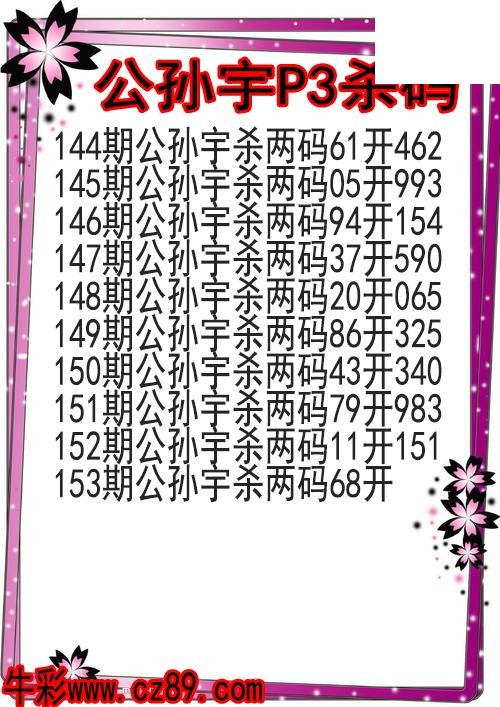 公孙宇P3杀码
144期公孙宇杀两码61开462
145期公孙宇杀两码05开993
146期公孙宇杀两码94开154
147期公孙宇杀两码37开590
148期公孙宇杀两码20开065
149期公孙宇杀两码86开325
150期公孙宇杀两码43开340
151期公孙宇杀两码79开983
152期公孙宇杀两码11开151
153期公孙宇杀两码68开
牛彩www.cz89.com